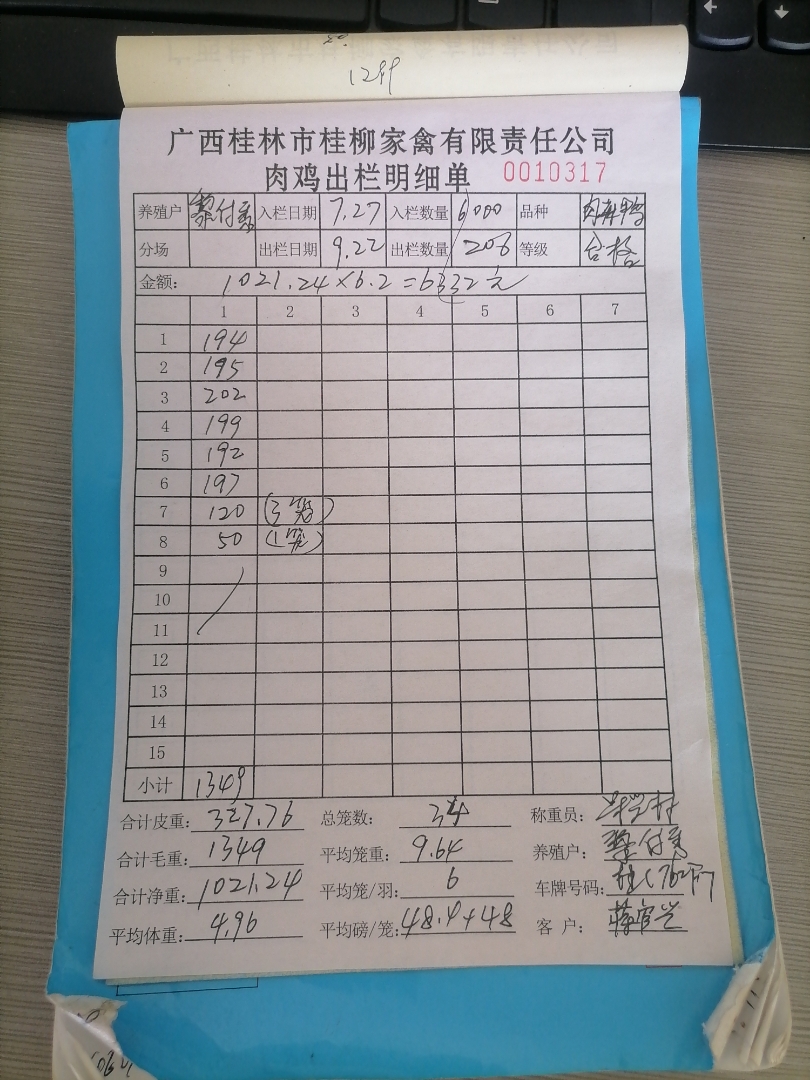 1299
广西桂林市桂柳家禽有限责任公司
肉鸡出栏明细单 0010317
养殖户 黎付秀 入栏日期 7.27 入栏数量 6000 品种
分场 出栏日期 9.22 出栏数量 206 等级 合格
金额: 1021.24×6.2=6332元
1 2 3 4 5 6 7
1 194
2 195
3 202
4 199
5 192
6 197
7 120 (3笼)
8 50 (1笼)
9
10
11
12
13
14
15
小计 1349
合计皮重: 327.76 总笼数: 34 称重员:
合计毛重: 1349 平均笼重: 9.64 养殖户: 黎付秀
合计净重: 1021.24 平均笼/羽: 6 车牌号码:
平均体重: 4.96 平均磅/笼: 48.4+48 客户: